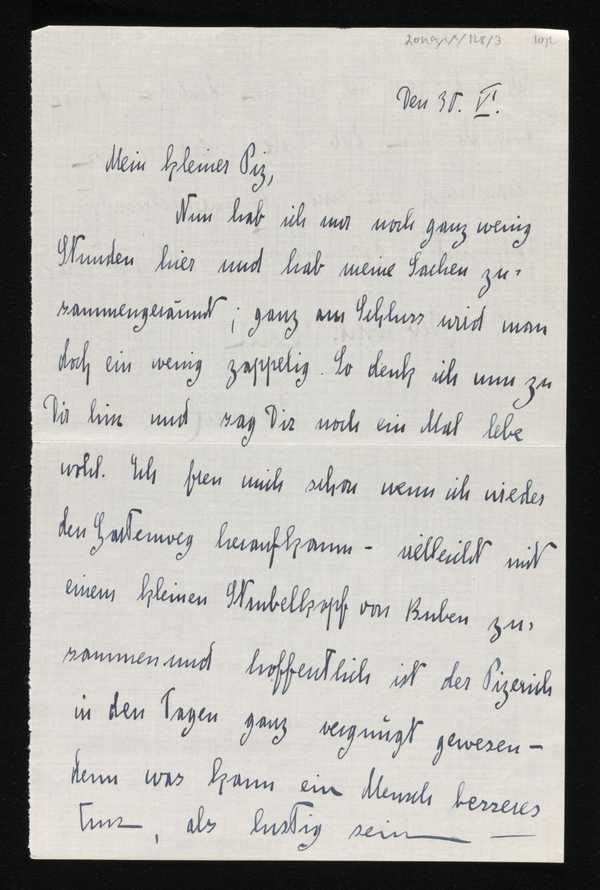 Den 30. VI.
Mein kleiner Piz,
Nun hab ich nur noch ganz wenig
Stunden hier und hab meine Sachen zu-
sammengeräumt; ganz am Schluss wird man
doch ein wenig zappelig. So denk ich nun zu
Dir hin und sag Dir noch ein Mal lebe
wohl. Ich freu mich schon wenn ich wieder
den Gartenweg heraufkomm - vielleicht mit
einem kleinen Strubelkopf von Buben zu-
sammen und hoffentlich ist der Pizerich
in den Tagen ganz vergnügt gewesen -
denn was kann ein Mensch besseres
tun, als lustig sein —